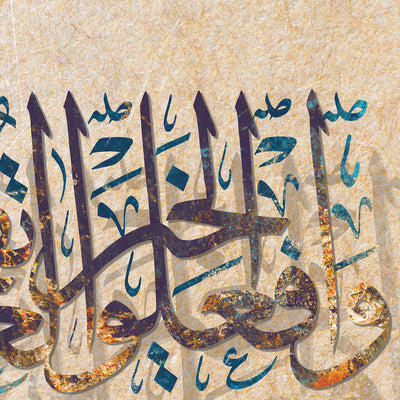 وافعلوا الخير